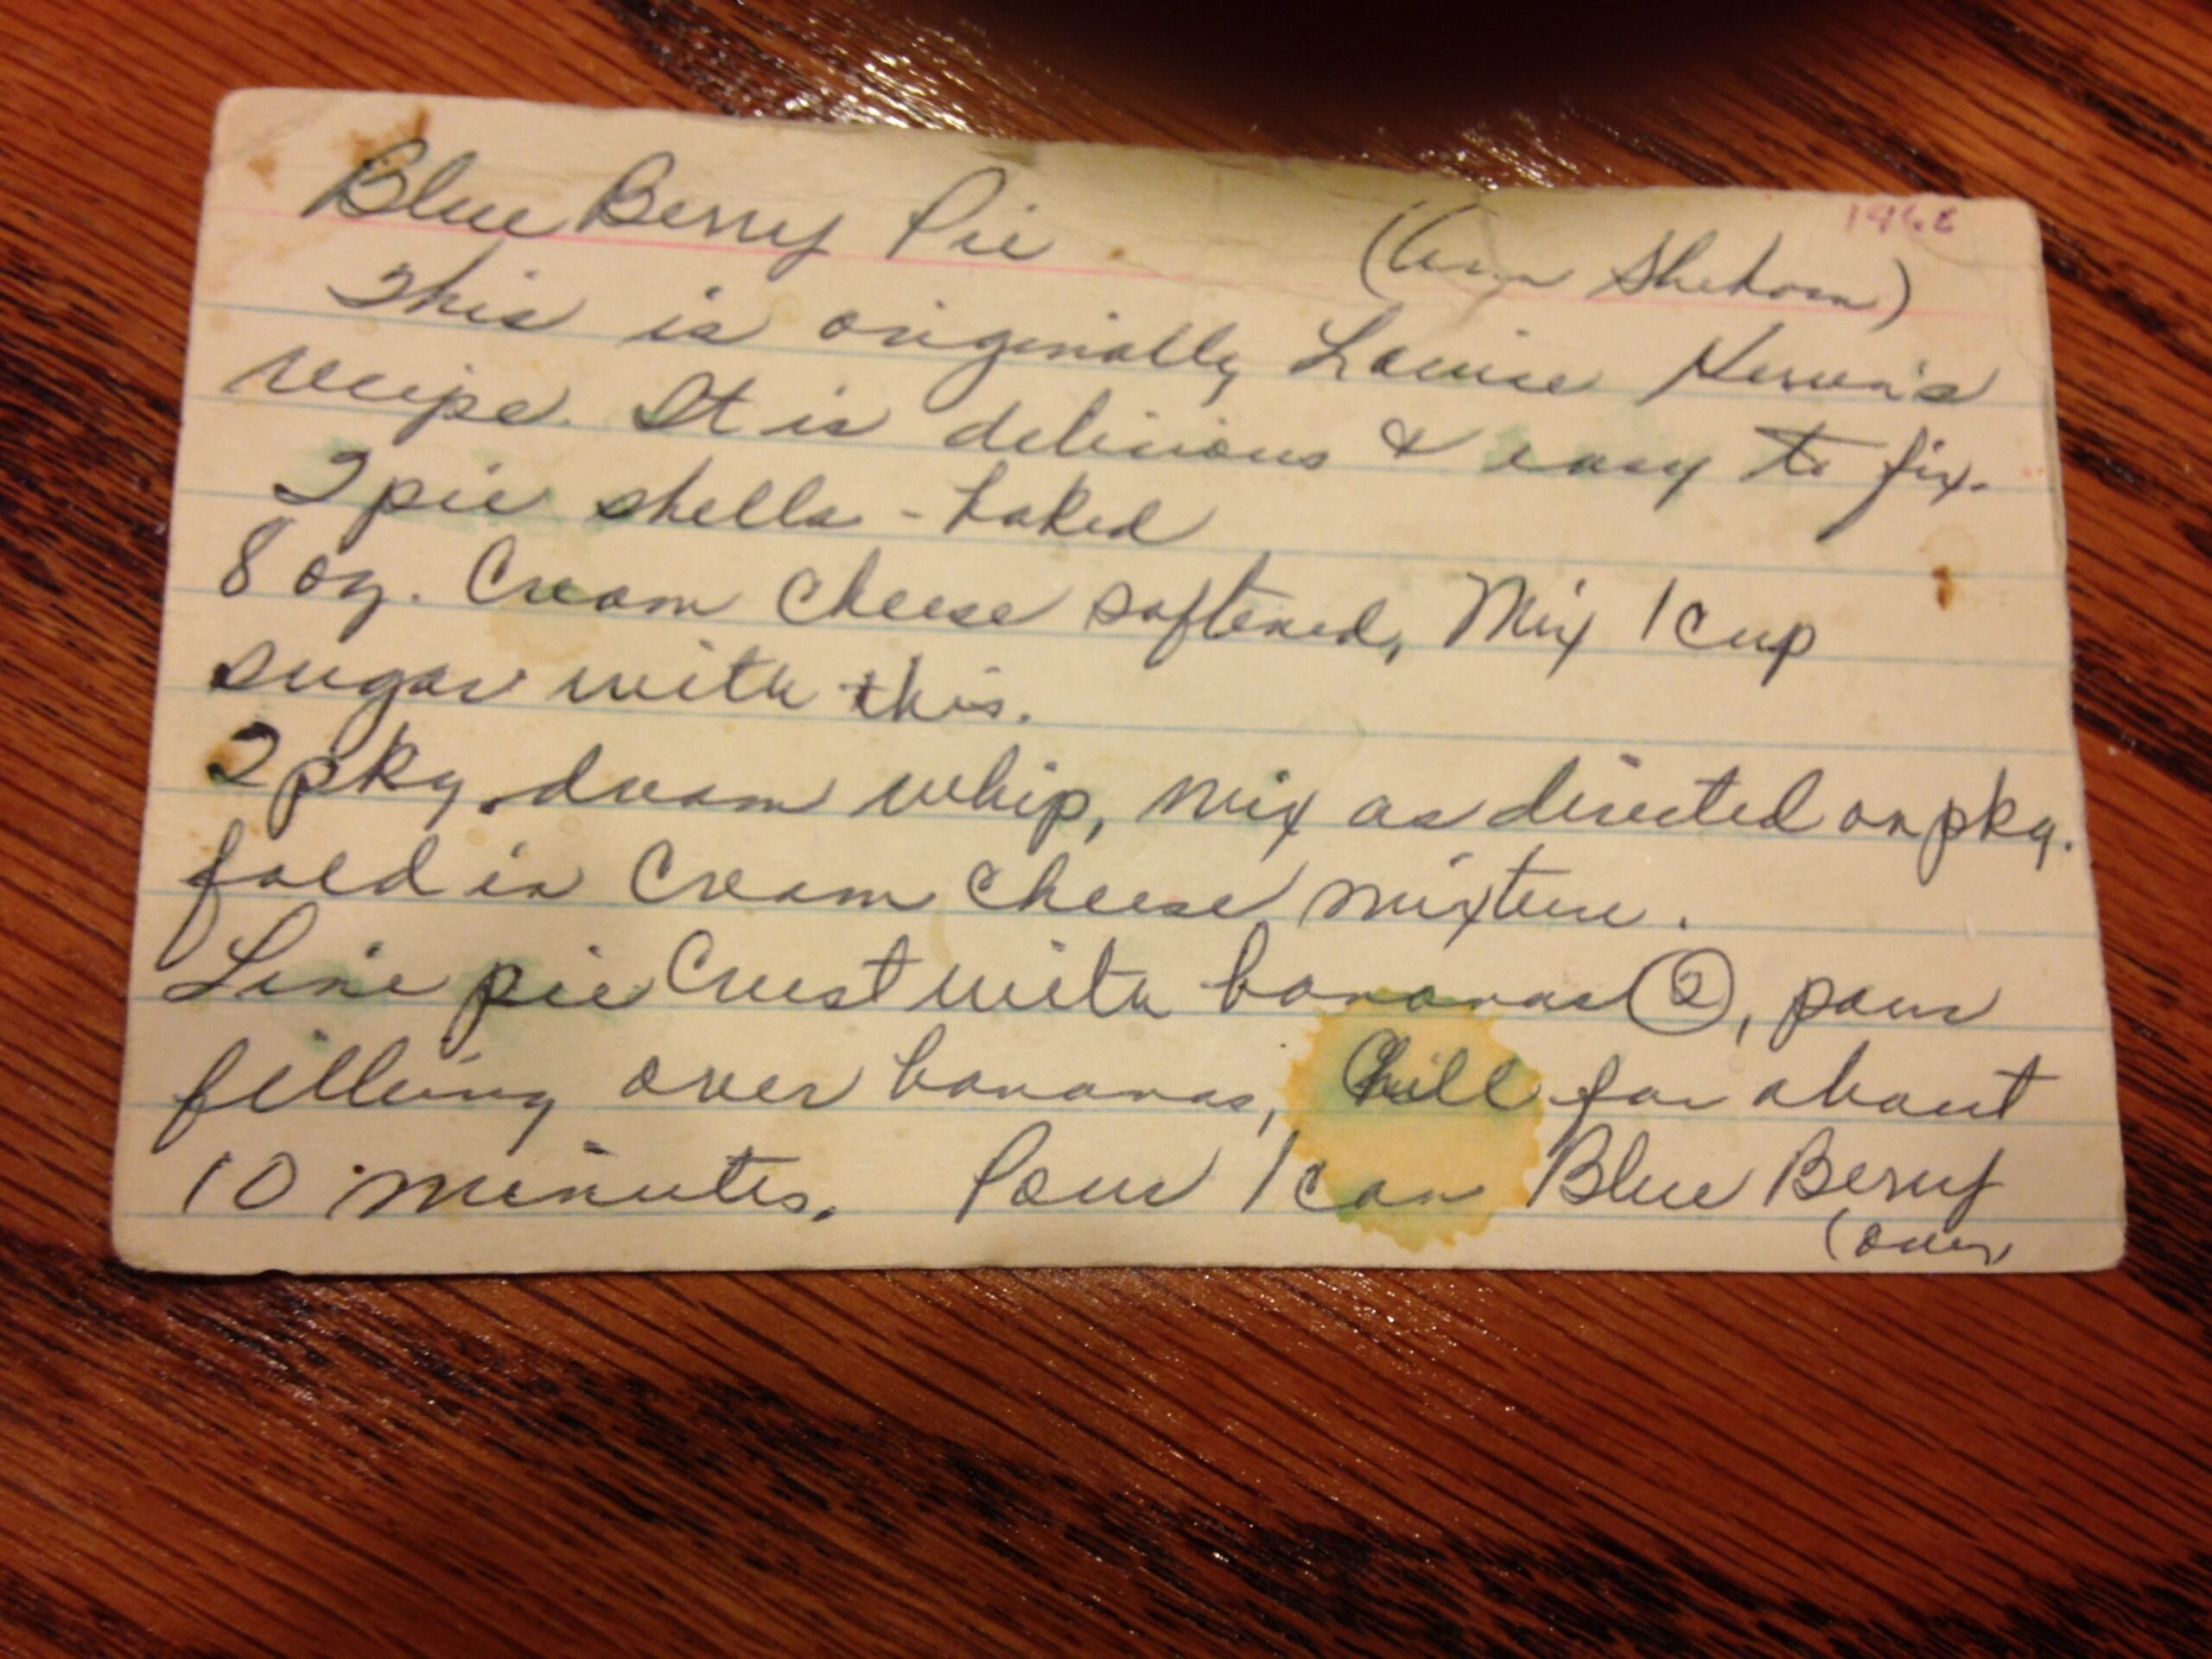 1968
Blue Berry Pie (Ann
This is originally Louise
recipe. It is delicious & easy to fix.
2 pie shells - baked
8 oz. Cream Cheese softened, Mix 1 cup
sugar with this.
2 pkg. dream whip, mix as directed on pkg.
fold in Cream Cheese mixture.
Line pie Crust with bananas ②, pour
filling over bananas, Chill for about
10 minutes. Pour 1 can Blue Berry
(over